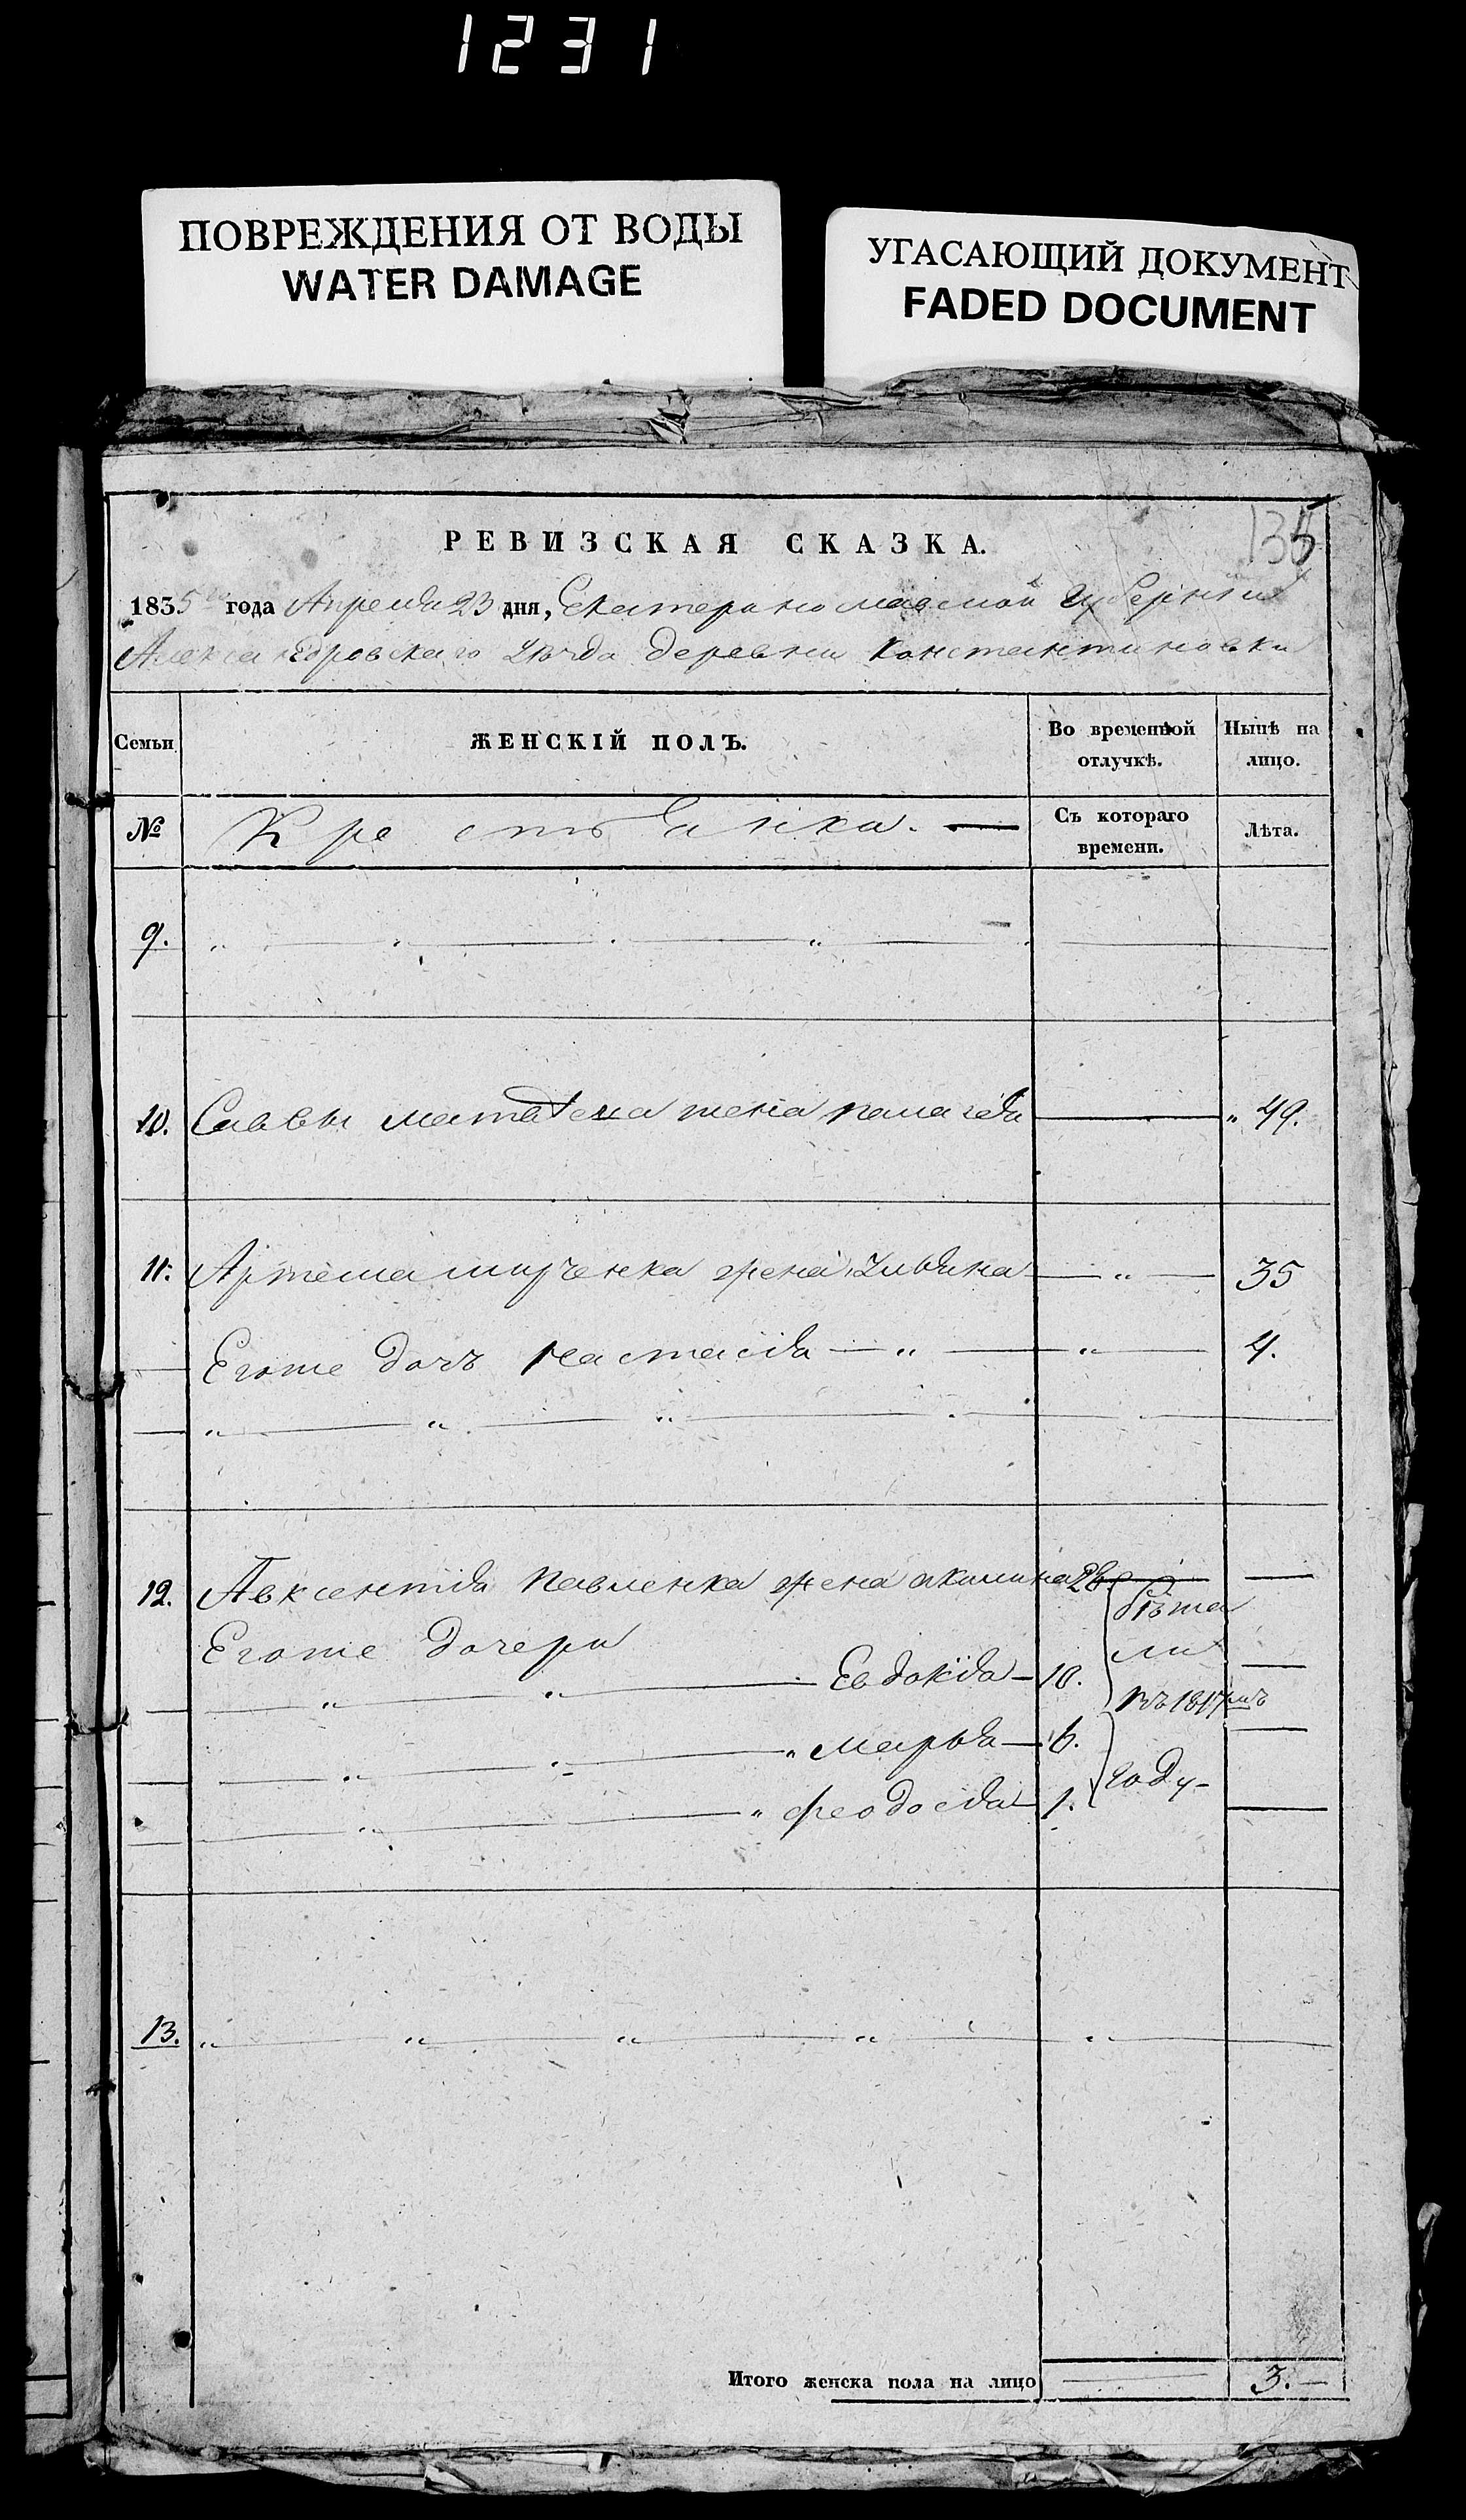 1231
ПОВРЕЖДЕНИЯ ОТ ВОДЫ
WATER DAMAGE
УГАСАЮЩИЙ ДОКУМЕНТ
FADED DOCUMENT
135
РЕВИЗСКАЯ СКАЗКА.
1835го года Апреля 23 дня, Екатеринославской Губернии
Александровскаго уѣзда деревни Константиновки
Семьи ЖЕНСКІЙ ПОЛЪ. Во временной отлучкѣ. Нынѣ на лицо.
№ Крестьянка. Съ котораго времени. Лѣта.
9.
10. Саввы жена 49.
11. Артема жена Ульяна 35
Егоже дочъ Настасія 4.
12. Авксентія Павленка жена акилина 26 бѣжа
Егоже дочери
Евдокія 10. ли
въ 1817мъ
марья 6.
феодосія 1. году
13.
Итого женска пола на лицо 3.